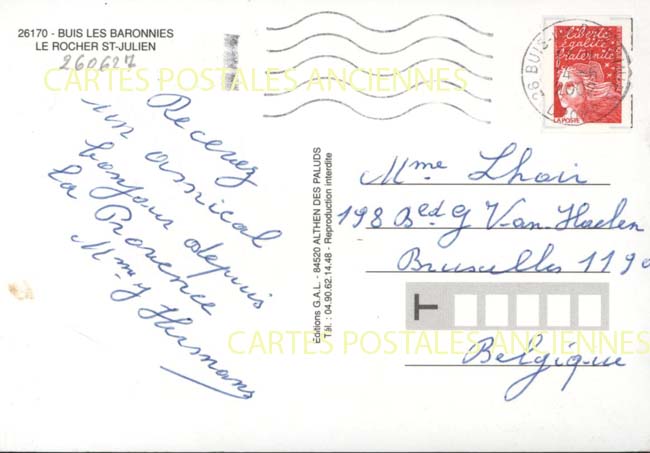 26170 - BUIS LES BARONNIES
LE ROCHER ST-JULIEN
260627
CARTES POSTALES ANCIENNES
Recevez
un amical
bonjour depuis
la Provence
Mme y Humans
Éditions G.A.L. - 84520 ALTHEN DES PALUDS
Tél. : 04.90.62.14.48 - Reproduction interdite
26 BUIS
liberté
égalité
fraternité
LA POSTE
Mme Lhoir
198 Bld G Van Haelen
Bruxelles 1190
T
CARTES POSTALES ANCIENNES
Belgique